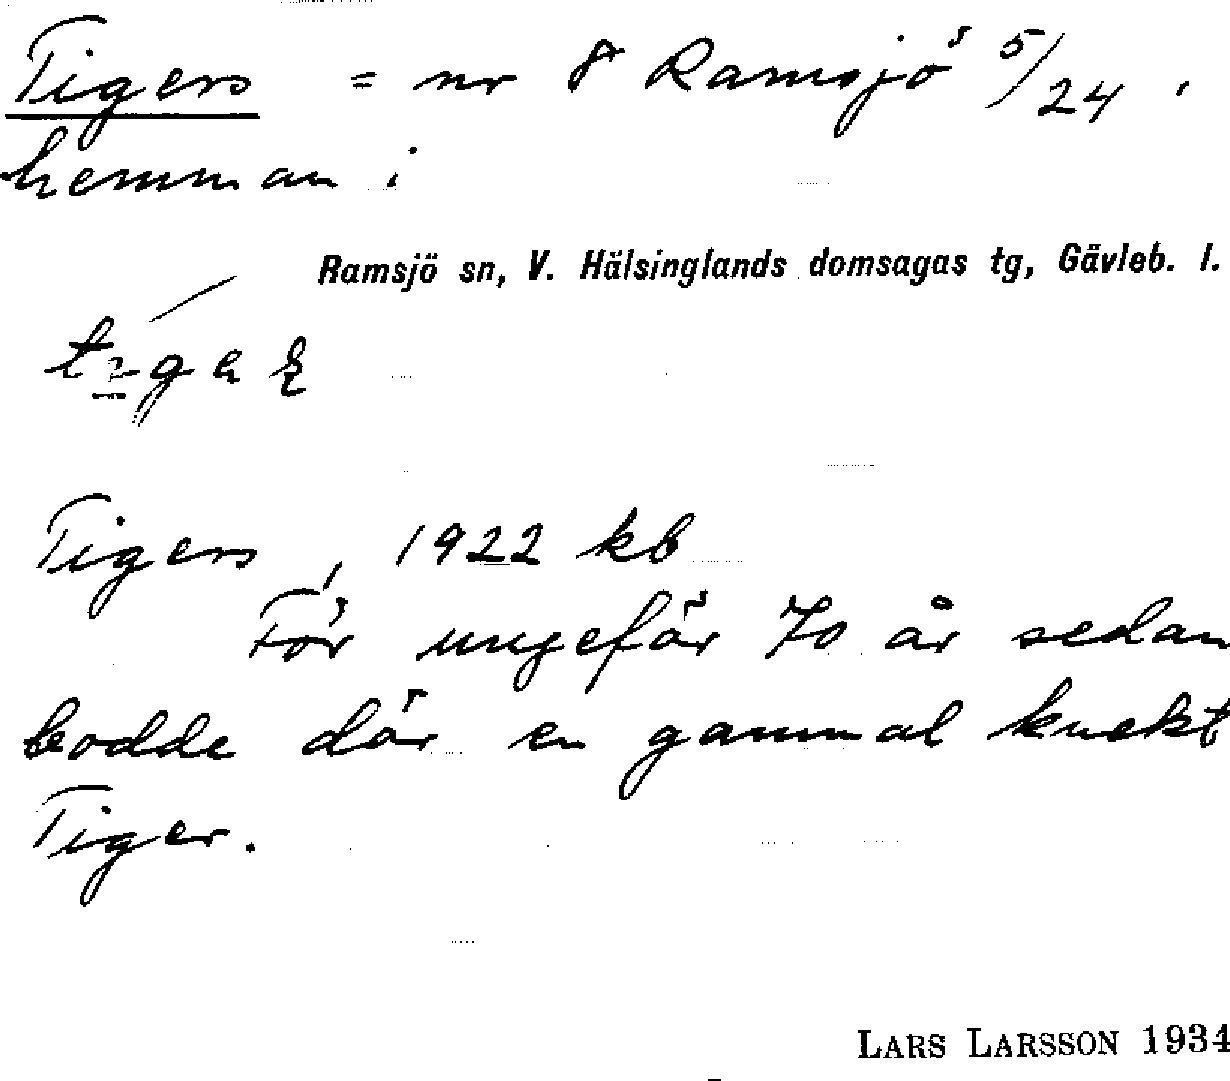 Tigers = nr 8 Ramsjö 5/24.
hemman i
Ramsjö sn, V. Hälsinglands domsagas tg, Gävleb. l.
Tigers, 1922 kb
För ungefär 70 år sedan
bodde där en gammal knekt
Tiger.
LARS LARSSON 1934